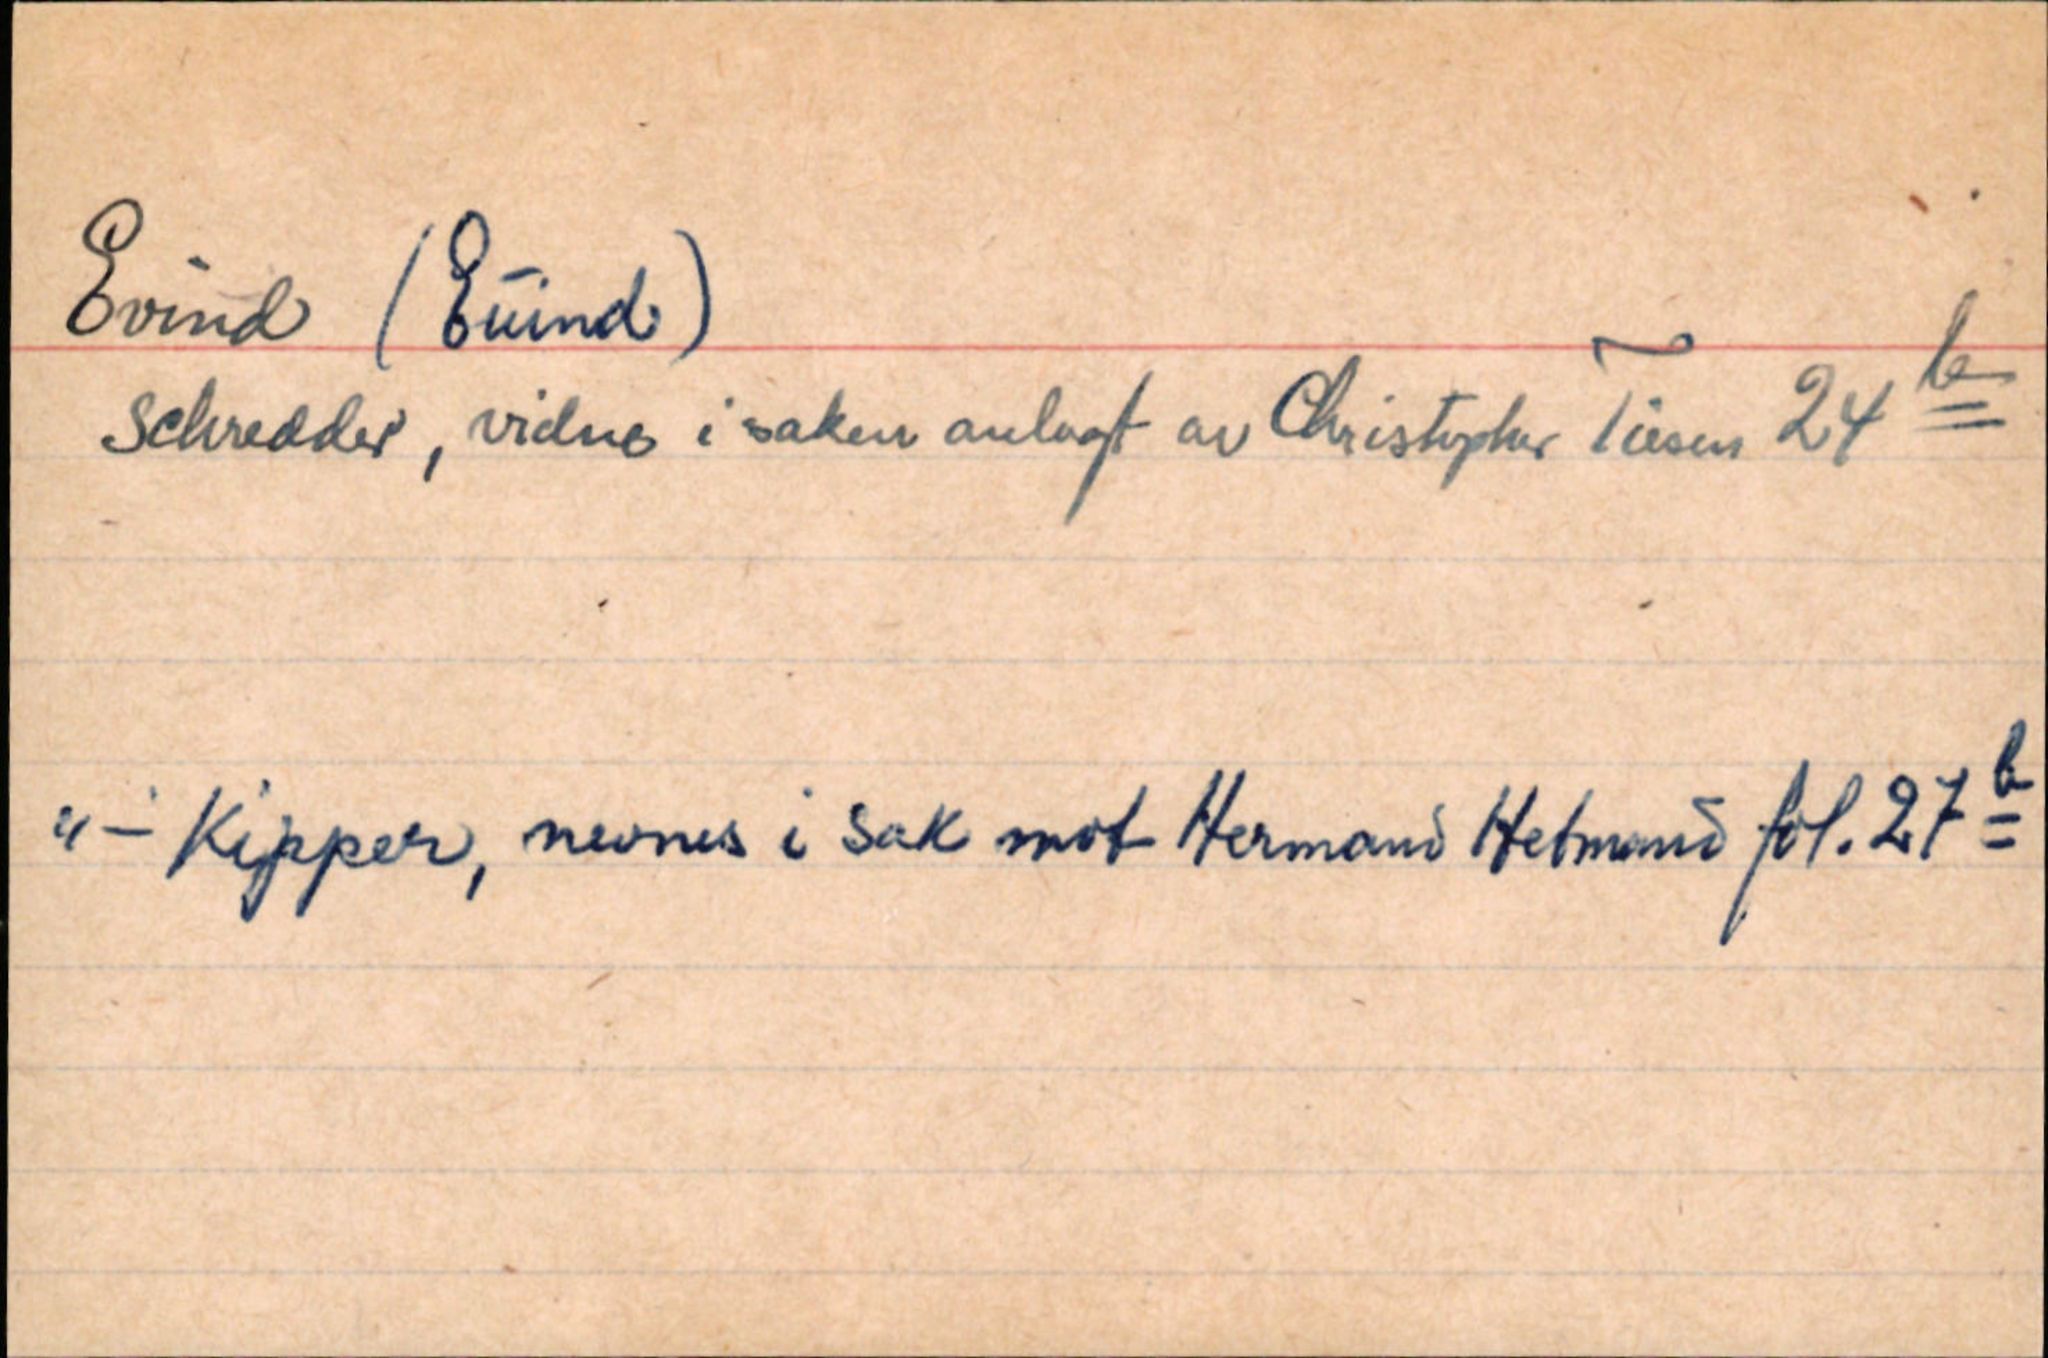 Evind (Eüind)
Schredder, vidne i saken anlagt av Christopher Tiesen 24 b
"- Kipper, nevnes i sak mot Hermand Hetmand fol. 27 b